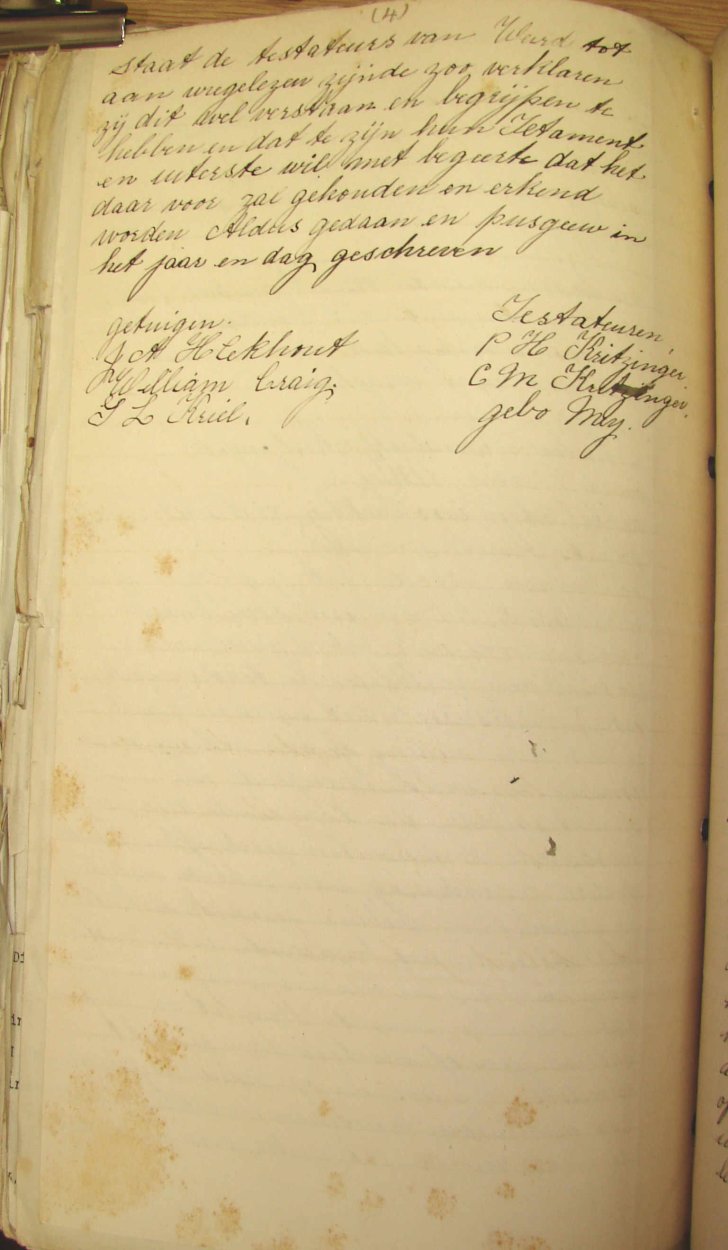 (4)
staat de testateurs van Word tot
aan wregelezen zijnde zoo verklaren
zij dit wel verstaan en begrijpen te
hebben en dat te zijn hun Testament
en uiterste wil met begeerte dat het
daar voor zal gehouden en erkend
worden Aldus gedaan en pusgeew in
het jaar en dag geschreven
getuigen. Testateuren
J A H Eekhout P H Kritzinger
William Craig. C M Kritzinger.
S L Kriel. gebo Mey.